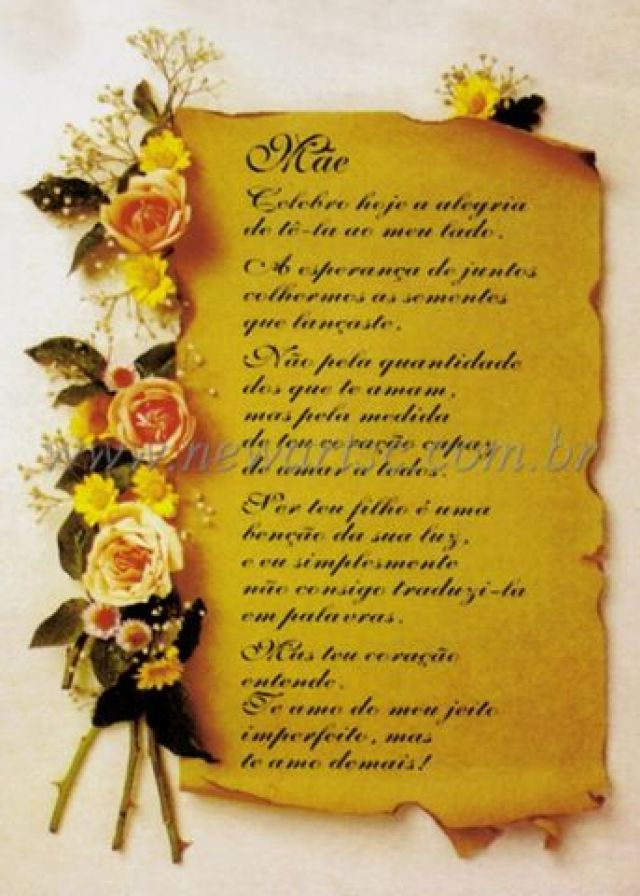 Mãe
Celebro hoje a alegria
de tê-la ao meu lado.
A esperança de juntos
colhermos as sementes
que lançaste.
Não pela quantidade
dos que te amam,
mas pela medida
de teu coração capaz
de amar a todos.
www.newartsr.com.br
Ser teu filho é uma
benção da sua luz,
e eu simplesmente
não consigo traduzi-la
em palavras.
Mas teu coração
entende.
Te amo do meu jeito
imperfeito, mas
te amo demais!